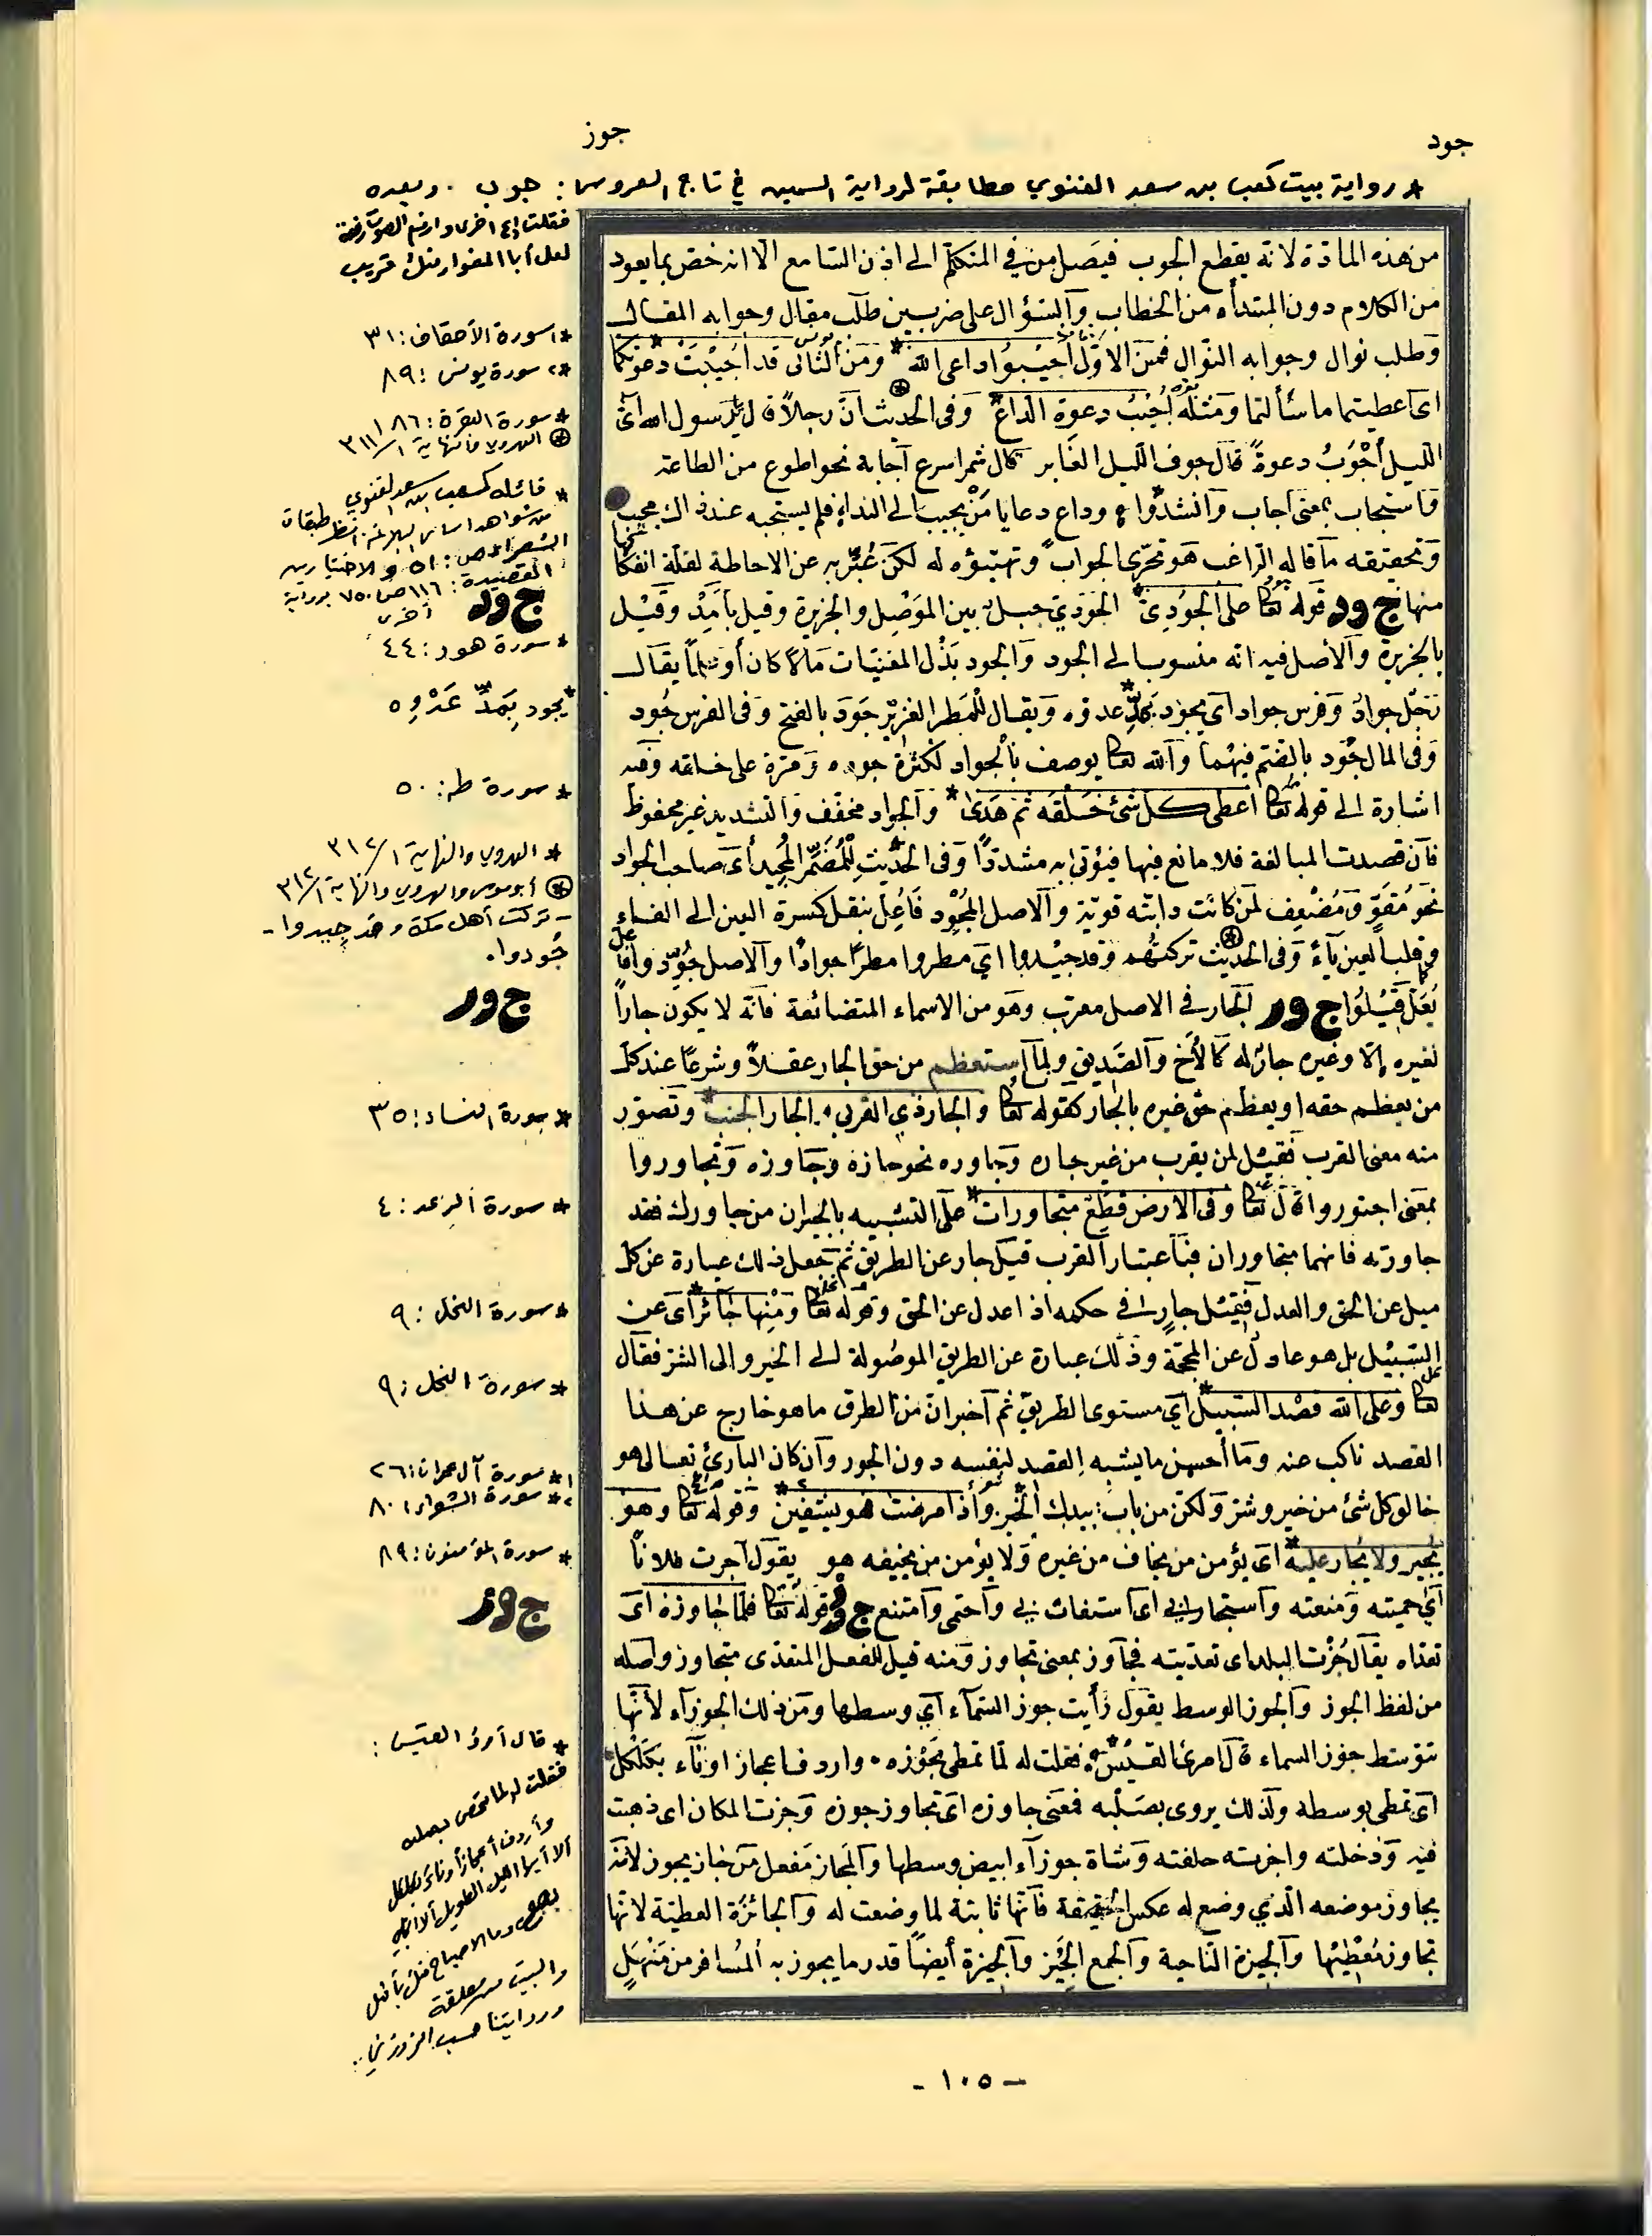 جود
جوز
* رواية بيت كعب بن سعد الغنوي مطابقة لرواية السمين في تاج العروس: جوب . وبعده
فقلت ادع اخرى وارفع الصوت رفعة
لعل أبا المغوار منك قريب
من هذه المادة لانه يقطع الجوب فيصل من في المتكلم الى اذن السامع الا انه خص بما يعود
من الكلام دون المبتدأ من الخطاب والسؤال على ضربين طلب مقال وجوابه المقال
وطلب نوال وجوابه النوال فمن الاول أجيبوا داعى الله * ومن الثانى قد اجيبت دعوتكما *
اى اعطيتما ما سألتما ومثله أجيب دعوة الداع * وفى الحديث ان رجلا قال يا رسول الله اى
الليل أجوب دعوة قال جوف الليل الغابر قال شمر اسرع اجابة نحو اطوع من الطاعة
واستجاب بمعنى اجاب وانشدوا * وداع دعا يا من يجيب الى الندا * فلم يستجبه عند ذاك مجيب
وتحقيقه ما قاله الراغب هو تحرى الجواب وتهيئوه له لكن عبر به عن الاحاطة لقلة انفكاكها
منها ج ود قوله تعا على الجودى * الجودي جبل بين الموصل والجزيرة وقيل بآمد وقيل
بالجزيرة والاصل فيه انه منسوب الى الجود والجود بذل المقتنيات مالا كان أو علما يقال
رجل جواد وفرس جواد اى يجود بمد عدوه * ويقال للمطر الغزير جود بالفتح وفى الفرس جود
وفى المال جود بالضم فيهما والله تعا يوصف بالجواد لكثرة جوده وَ على خلقه وفيه
اشارة الى قوله تعا اعطى كل شئ خلقه ثم هدى * والجواد مخفف والتشديد غير محفوظ
فان قصدت المبالغة فلا مانع فيها فيؤتى به مشددا وفى الحديث للمضمر المجيد أى صاحب الجواد
نحو مقو ومضعف لمن كانت دابته قوية والاصل المجود فاعل بنقل كسرة العين الى الفاء
وقلب العين ياء وفى الحديث تركتهم وقد جيدوا اي مطروا مطرا جوادا والاصل جود وا فاعل
كما فعل قيلوا ج ور الجار في الاصل معرب وهو من الاسماء المتضائفة فانه لا يكون جارا
لغيره إلا وغيره جار له كالأخ والصديق ولما استعظم من حق الجار عقلا وشرعا عند كل
من يعظم حقه او يعظم حق غيره بالجار كقوله تعا والجار ذي القربى والجار الجنب * وتصور
منه معنى القرب فقيل لمن يقرب من غير جاره وجاوره نحو حازه وجاوزه وتجاوروا
بمعنى اجتوروا قال تعا وفى الارض قطع متجاورات * على التشبيه بالجيران من جاورك فقد
جاورته فانهما متجاوران فباعتبار القرب قيل جار عن الطريق ثم جعل ذلك عبارة عن كل
ميل عن الحق والعدل فقيل جار في حكمه اذا عدل عن الحق وقوله تعا ومنها جائر * اى عن
السبيل بل هو عادل عن المحجة وذلك عبارة عن الطريق الموصولة الى الخير والى الشر فقال
تعا وعلى الله قصد السبيل * اي مستوى الطريق ثم اخبر ان من الطرق ما هو خارج عن هذا
القصد ناكب عنه وما أحسن ما يشبه القصد لنفسه دون الجور وان كان البارئ تعالى هو
خالق كل شئ من خير وشر ولكن من باب: بيدك الخير * وأذا مرضت فهو يشفين * وقوله تعا وهو
يجير ولا يجار عليه * اى يؤمن من يخاف من غيره ولا يؤمن من يخيفه هو يقول اجرت فلانا
أي حميته ومنعته واستجار بى اى استغاث بى واحتمى وامتنع ج وز قوله تعا فلما جاوزه اى
تعداه يقال جزت البلد اى تعديته فجاوز بمعنى تجاوز ومنه قيل للفعل المتعدى متجاوز واصله
من لفظ الجوز والجوز الوسط يقول رأيت جوز السماء اي وسطها ومن ذلك الجوزاء لأنها
تتوسط جوز السماء قال امرئ القيس * فقلت له لما تمطى بجوزه * واردف اعجازا وناء بكلكل
اى تمطى بوسطه ولذلك يروى بصلبه فمعنى جاوزه اى تجاوز جوزه وجزت المكان اى ذهبت
فيه ودخلته واجزته خلفته وشاة جوزاء ابيض وسطها والمجاز مفعل من جاز يجوز لانه
يجاوز موضعه الذي وضع له عكس الحقيقة فانها ثابتة لما وضعت له والجائزة العطية لانها
تجاوز معطيها والجيزة الناحية والجمع الجيز والجيزة أيضا قدر ما يجوز به المسافر من منهل
*١ سورة الأحقاف: ٣١
*٢ سورة يونس: ٨٩
* سورة البقرة: ١٨٦
* الهروي والنهاية ٣١١/١
* قائله كعب بن سعد الغنوي
من شواهد اساس البلاغة. انظر طبقات
الشعراء ص: ٥١ والاختيارين
القصيدة: ١١٦ ص ٧٥٠ برواية
أخرى
ج ود
* سورة هود: ٤٤
* يجود بمدّ عَدْوِه
* سورة طه: ٥٠
* الهروي والنهاية ٣١٢/١
* أبو موسى والهروي والنهاية ٣١٢/١
- تركت أهل مكة وقد جيدوا -
جُودوا.
ج ور
* سورة النساء: ٣٥
* سورة الرعد: ٤
* سورة النحل: ٩
* سورة النحل: ٩
*١ سورة آل عمران: ٢٦
*٢ سورة الشعراء: ٨٠
* سورة المؤمنون: ٨٩
ج وز
* قال أمرؤ القيس:
فقلت له لما تمطى بصلبه
وأردف أعجازا وناء بكلكل
ألا أيها الليل الطويل ألا انجلي
بصبح وما الاصباح منك بأمثل
والبيت من معلقة
وروايتنا حسب الزوزني..
- ١٠٥ -